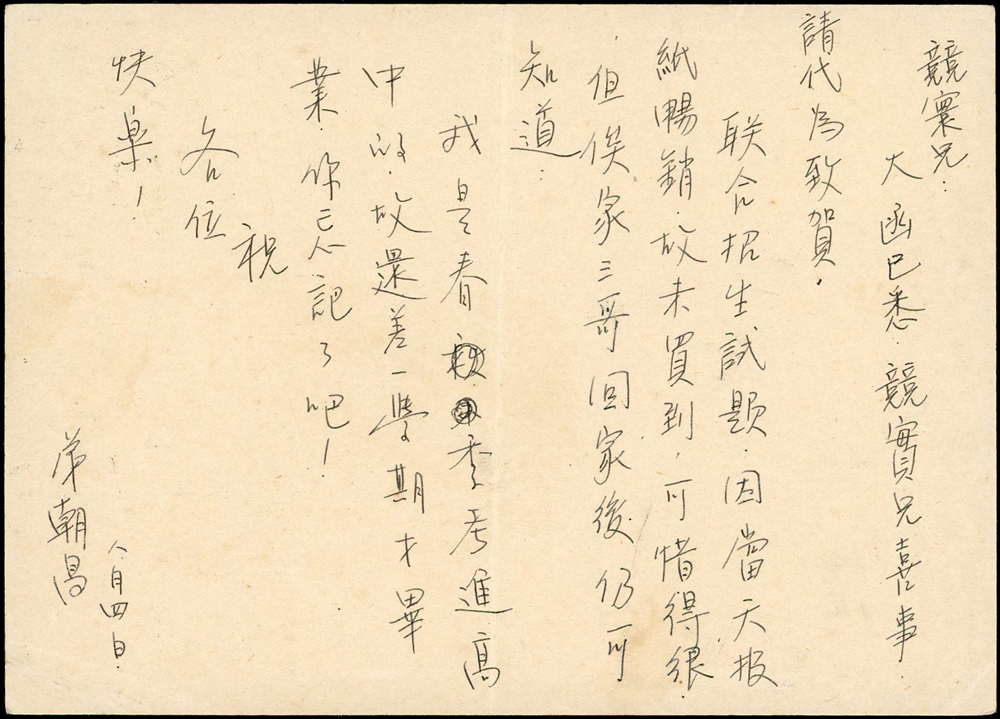 競寰兄：
大函已悉．競實兄喜事．
請代為致賀．
联合招生試題．因當天报
紙暢銷．故未買到，可惜得很．
但俟家三哥回家後仍可
知道．
我是春季考進高
中的．故還差一學期才畢
業．你忘記了吧！
祝
各位
快樂！
弟朝昌
八月四日．